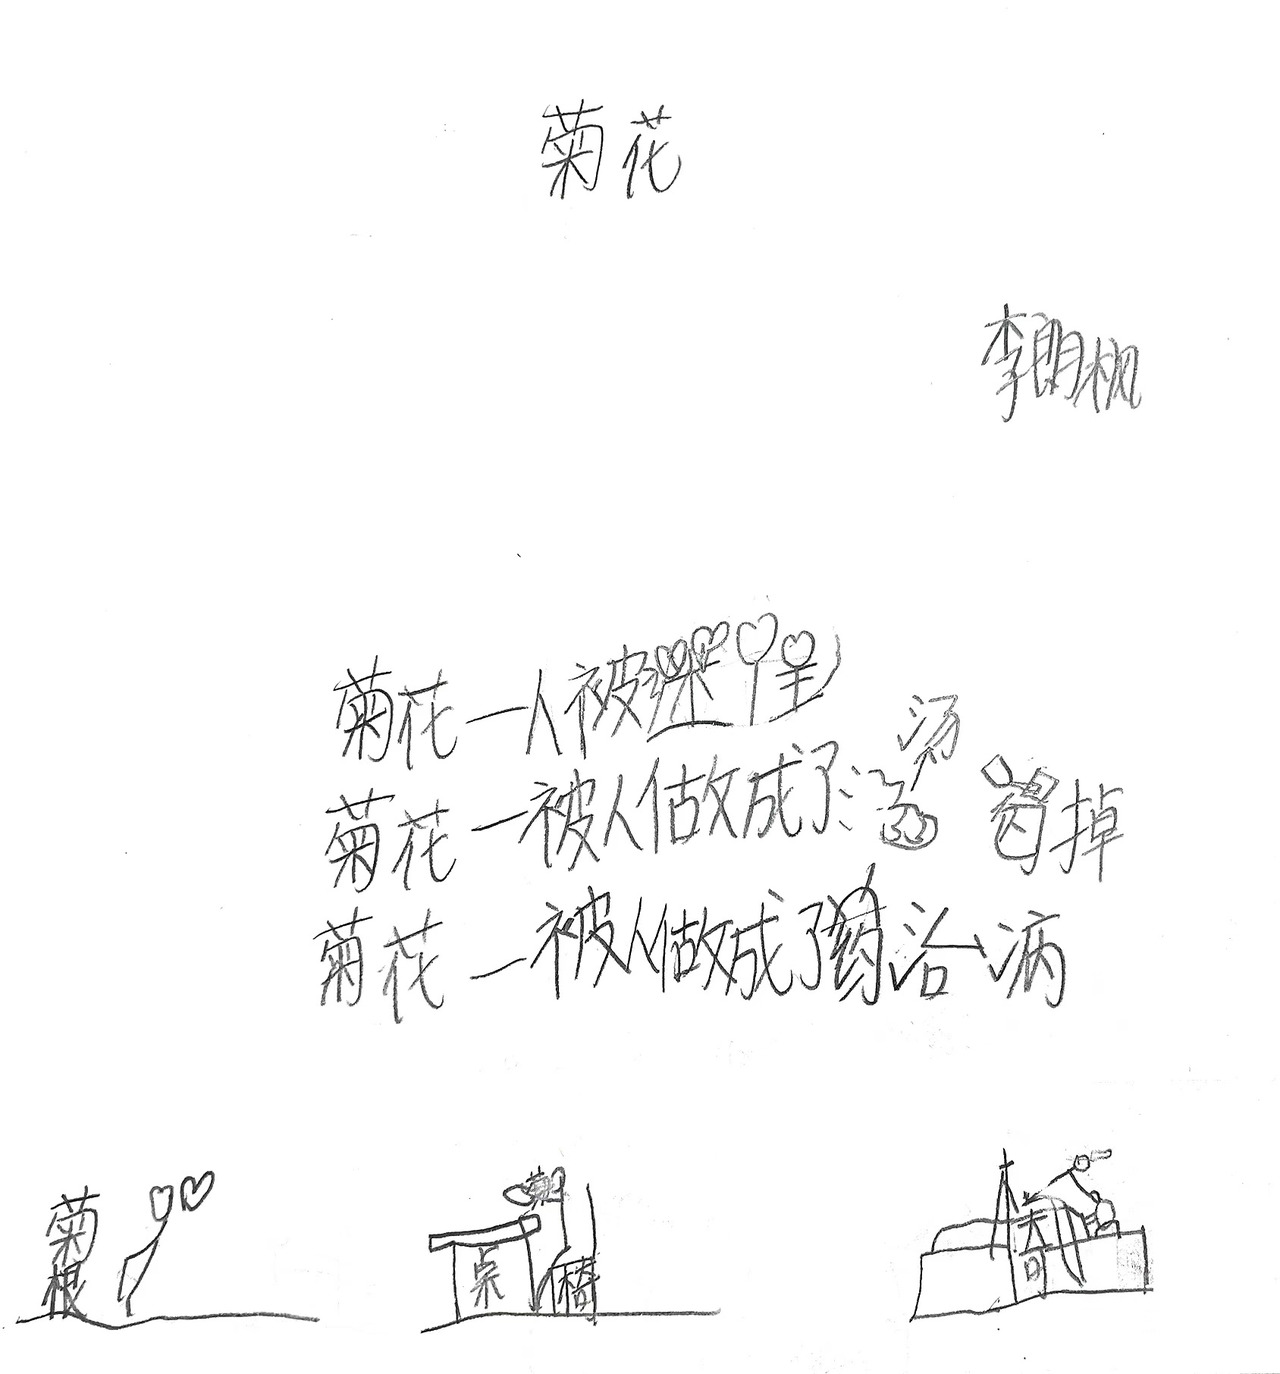 菊花
李朗枫
菊花一人被迷惺
汤
菊花一被人做成了汤 喝掉
菊花一被人做成了药治病
菊
根
桌
椅